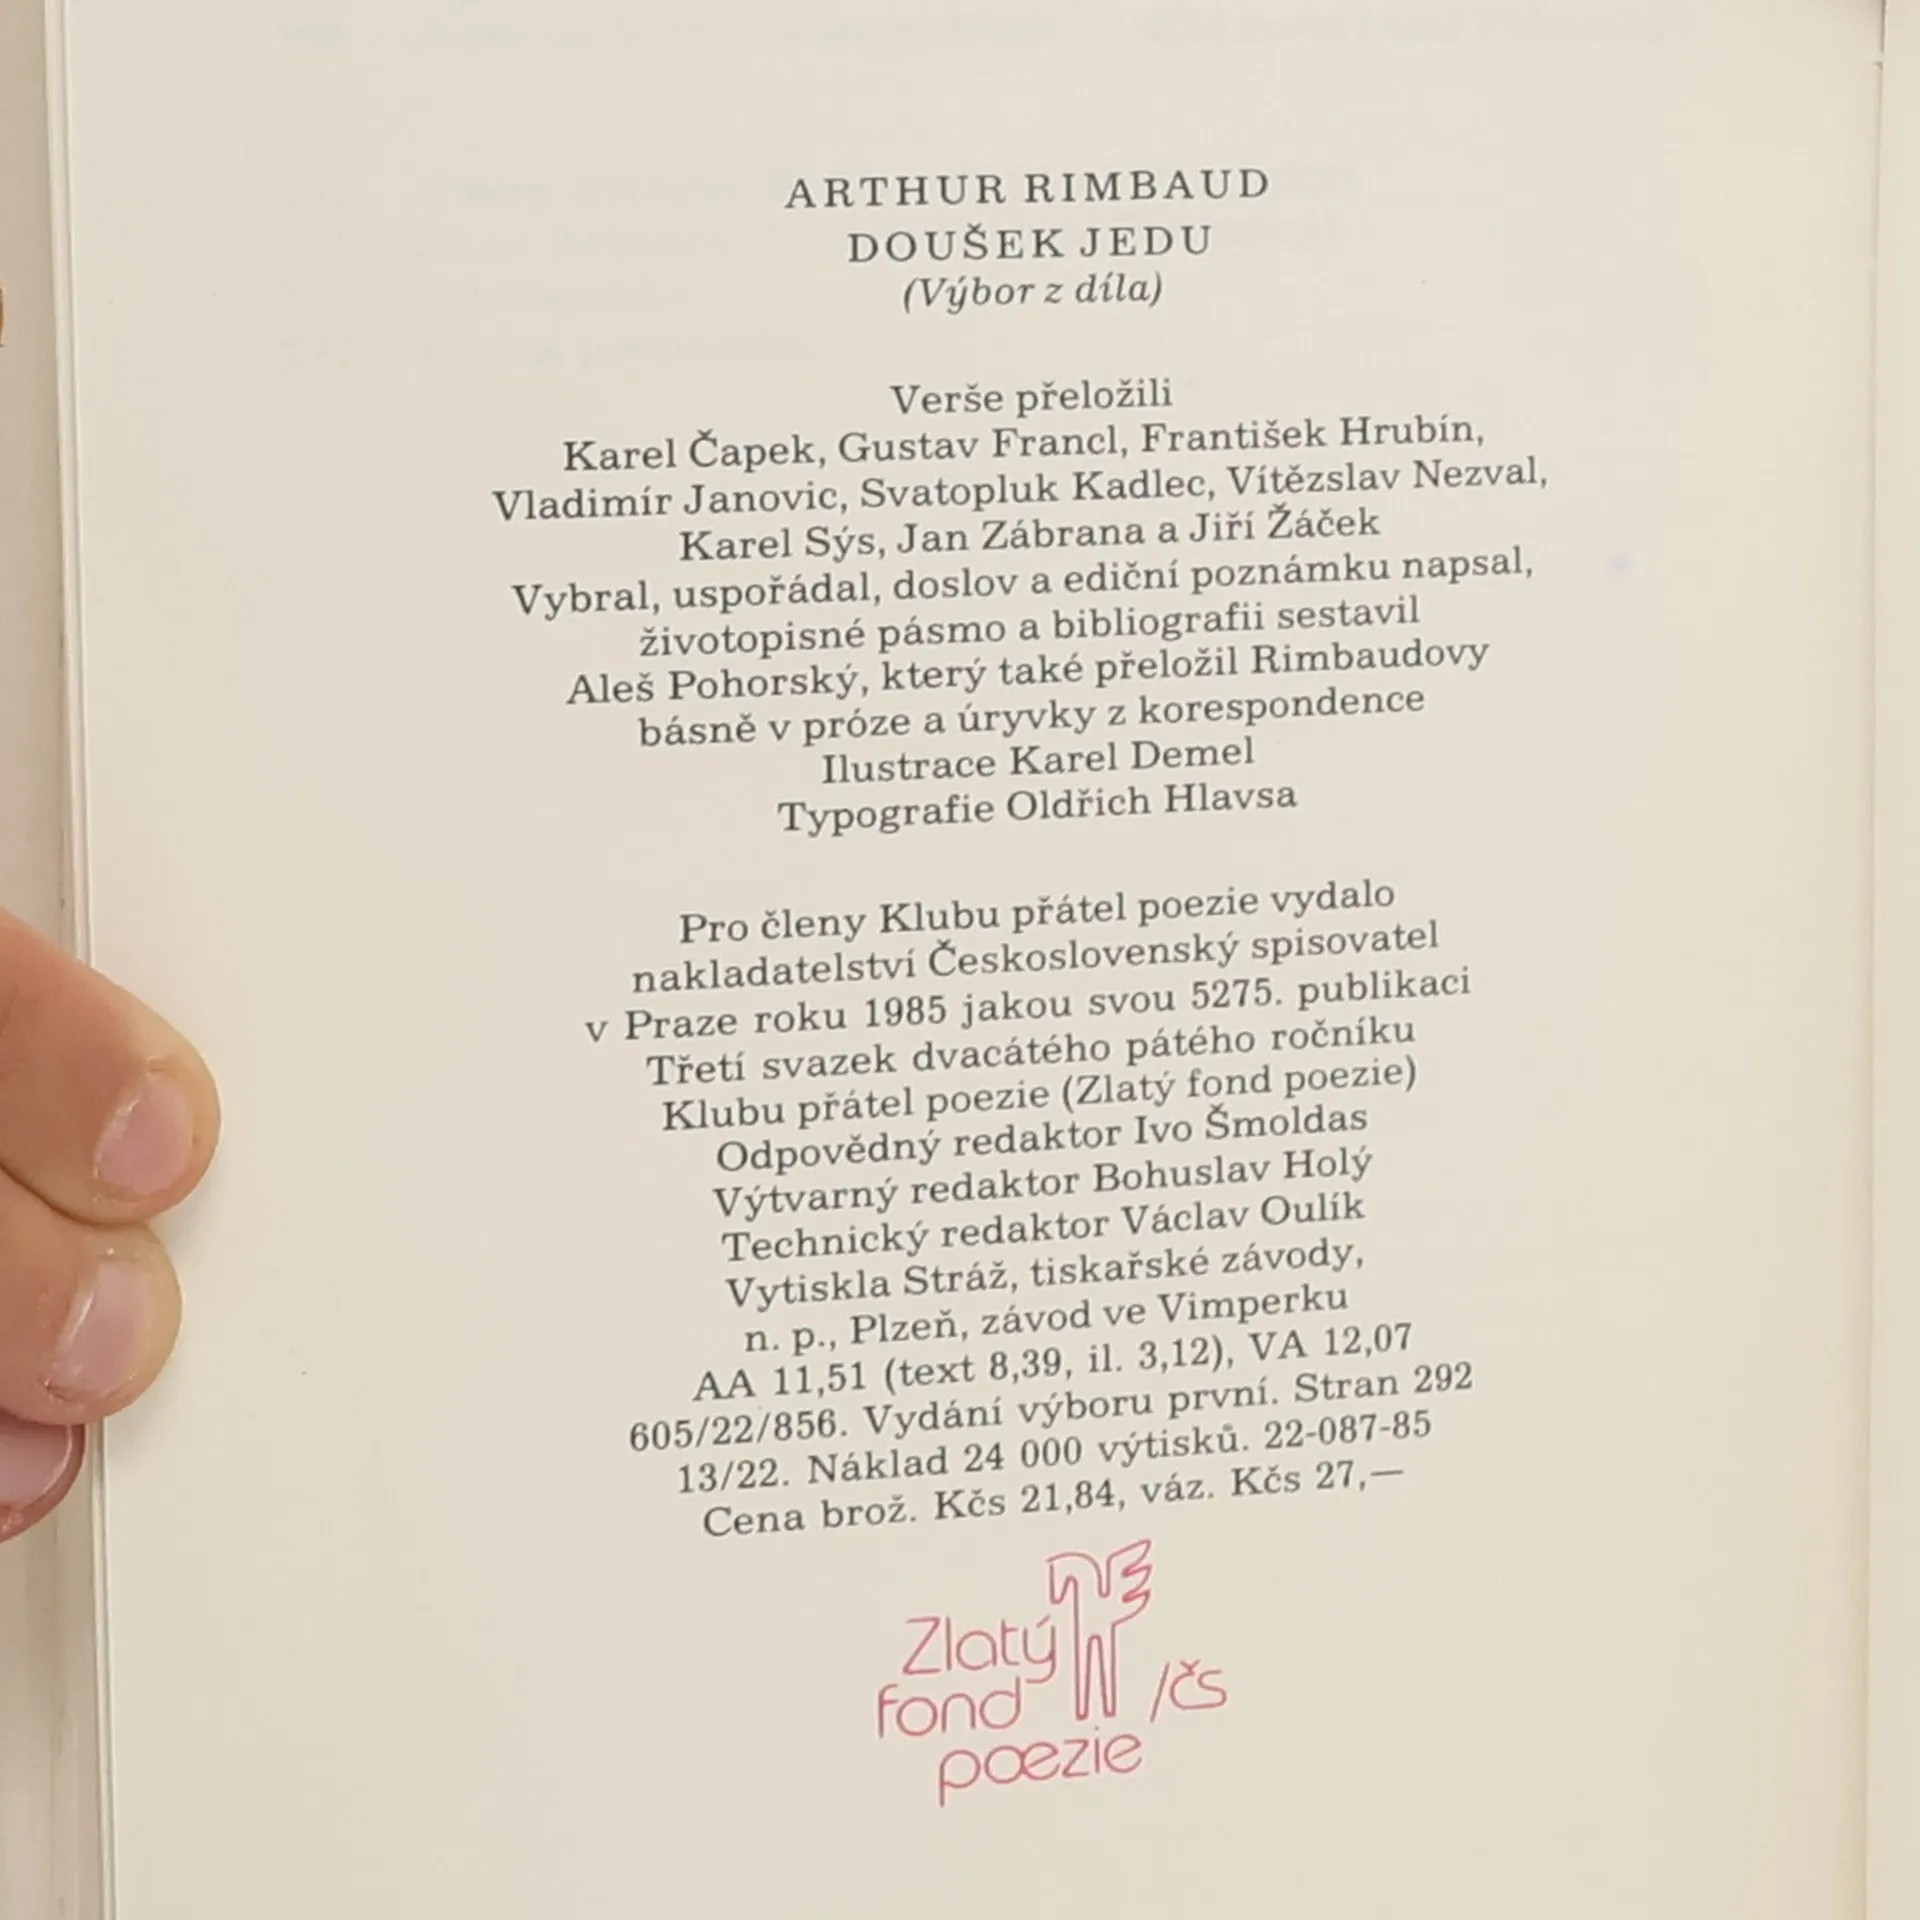 ARTHUR RIMBAUD
DOUŠEK JEDU
(Výbor z díla)
Verše přeložili
Karel Čapek, Gustav Francl, František Hrubín,
Vladimír Janovic, Svatopluk Kadlec, Vítězslav Nezval,
Karel Sýs, Jan Zábrana a Jiří Žáček
Vybral, uspořádal, doslov a ediční poznámku napsal,
životopisné pásmo a bibliografii sestavil
Aleš Pohorský, který také přeložil Rimbaudovy
básně v próze a úryvky z korespondence
Ilustrace Karel Demel
Typografie Oldřich Hlavsa
Pro členy Klubu přátel poezie vydalo
nakladatelství Československý spisovatel
v Praze roku 1985 jakou svou 5275. publikaci
Třetí svazek dvacátého pátého ročníku
Klubu přátel poezie (Zlatý fond poezie)
Odpovědný redaktor Ivo Šmoldas
Výtvarný redaktor Bohuslav Holý
Technický redaktor Václav Oulík
Vytiskla Stráž, tiskařské závody,
n. p., Plzeň, závod ve Vimperku
AA 11,51 (text 8,39, il. 3,12), VA 12,07
605/22/856. Vydání výboru první. Stran 292
13/22. Náklad 24 000 výtisků. 22-087-85
Cena brož. Kčs 21,84, váz. Kčs 27,—
Zlatý
fond /čs
poezie